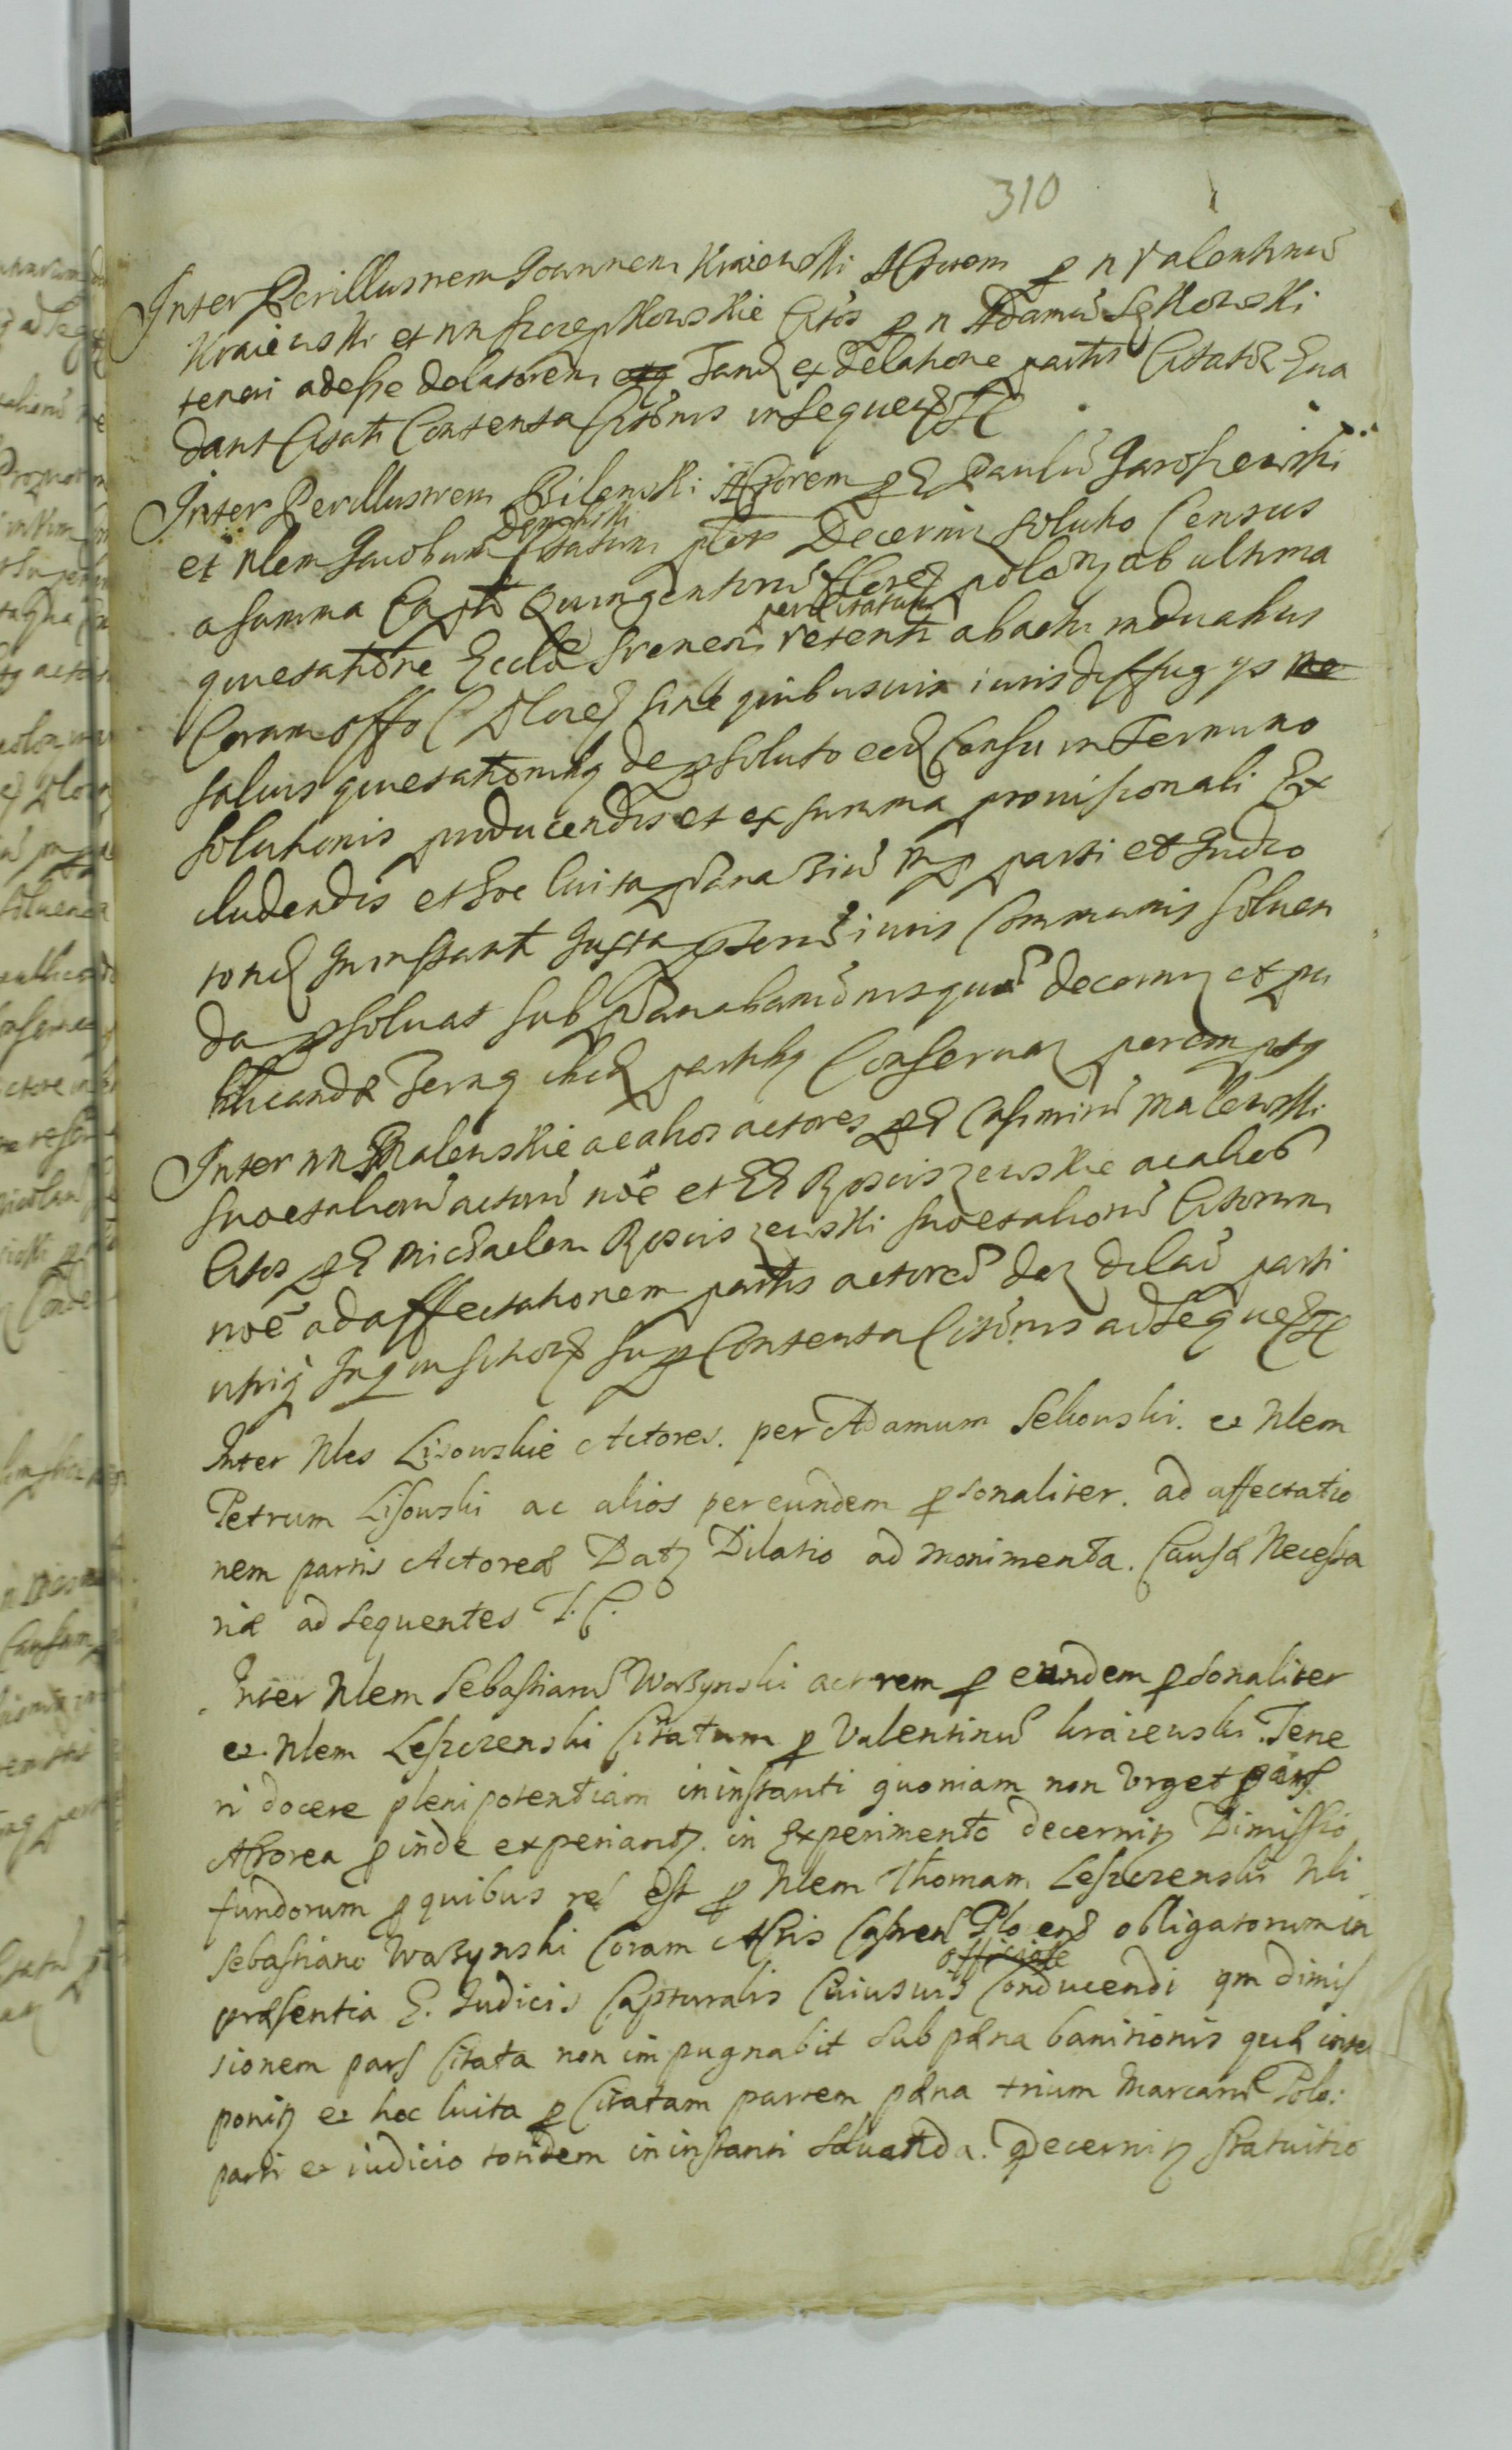 310
Inter Perillustrem Joannem Kraiewski Actorem p n Valentinu
Kraiewski et nn Szczepkowskie Ctos p n Adamu Sękowski
teneri adesse delatorem Tand ex delatione partis Citatoz Eua
dant Citati Contenta Citonis in sequen TC
Inter Perillustrem Bilenski Actorem p E Paulu Jaroszewski
Dembski
et Nlem Jacobum Citatum Decernit solutio Census
a summa Capti Quingentoru Floren polonz ab ultima
per Citatum
quietatione Eccla retenti ab actu in duabus
Coram offo C Plocen sine quibusuis iuris diffugys
saluis quietationibq de psoluto eod Censu in Termino
solutionis producendis et ex summa prouisionali Ex
cludendis et hoc luita pæna triu mp parti et Judio
totid In instanti Juxta iuris Communis soluen
da psoluat sub pæna banionis quæ decernitz et pu
blicanda Termq eisd partibq Conseruatz peremptq
Inter nn Malewskie ac alios actores p E Casimiru Malewski
suo et alioru actoru noe et EE Rosciszewskie ac alios
Ctos p E Michaelem Rosciszewski suo et alioru Citatorum
noe ad affectationem partis actoreæ datz dilao parti
utriq Inquisitioz sup Contenta Citonis ad seque TC
Inter Nles Lisowskie Actores. per Adamum Sekowski. et Nlem
Petrum Lisowski ac alios per eundem psonaliter. ad affectatio
nem partis Actoreæ Datz Dilatio ad monimenta. Causæ Necessa
riæ ad sequentes T. C.
Inter Nlem Sebastianu Wazynski actorem p eundem psonaliter
et Nlem Leszczenski Citatum p Valentinu Kraiewski. Tene
ri docere plenipotentiam in instanti quoniam non Vrget pars
Actorea pinde experiantz. in Experimento decernitz Dimissio
fundorum p quibus res est p Nlem Thomam Leszczenski Nli
Sebastiano Wazynski Coram Actis Castren Plocens obligatorum in
officiale
præsentia E. Judicis Capturalis Cuiusuis Conducendi qm dimis
sionem pars Citata non impugnabit sub pæna banitionis quæ inter
ponitz et hoc luita p Citatam partem pæna trium Marcaru Polo:
parti et iudicio totidem in instanti soluenda. decernitz statuitio